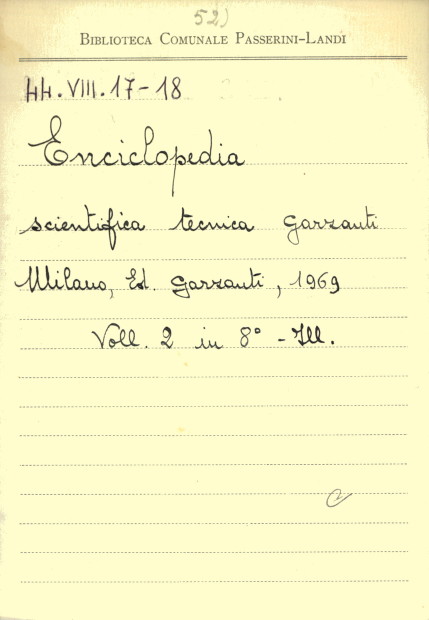 52)
BIBLIOTECA COMUNALE PASSERINI-LANDI
44.VIII.17-18
Enciclopedia
scientifica tecnica Garzanti
Milano, Ed. Garzanti, 1969
Voll. 2 in 8° - Ill.